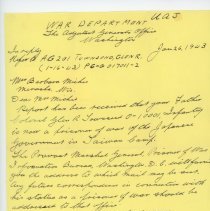 WAR DEPARTMENT U.A.J.
The Adjutant General's Office
Washington
In reply
Refer to AG 201 TOWNSEND, GLEN R. Jan 26, 1943
(1-16-43) PC-G 017011-2
Mrs Barbara Michie
Dear Mrs Michie
Report has been received that your Father
Colonel Glen R. Townsend O-1000, Infantry
is now a prisoner of war of the Japanese
Government in Taiwan Camp.
The Provost Marshal General, Prisoner of War
Information Bureau, Washington, D.C. will furnish
you the address to which mail may be sent.
Any future correspondence in connection with
his status as a prisoner of war should be
addressed to that office